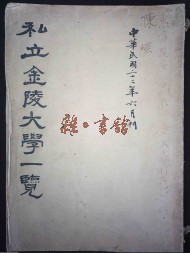 私立金陵大學一覽
中華民國二十二年六月刊
陳
雅·書館